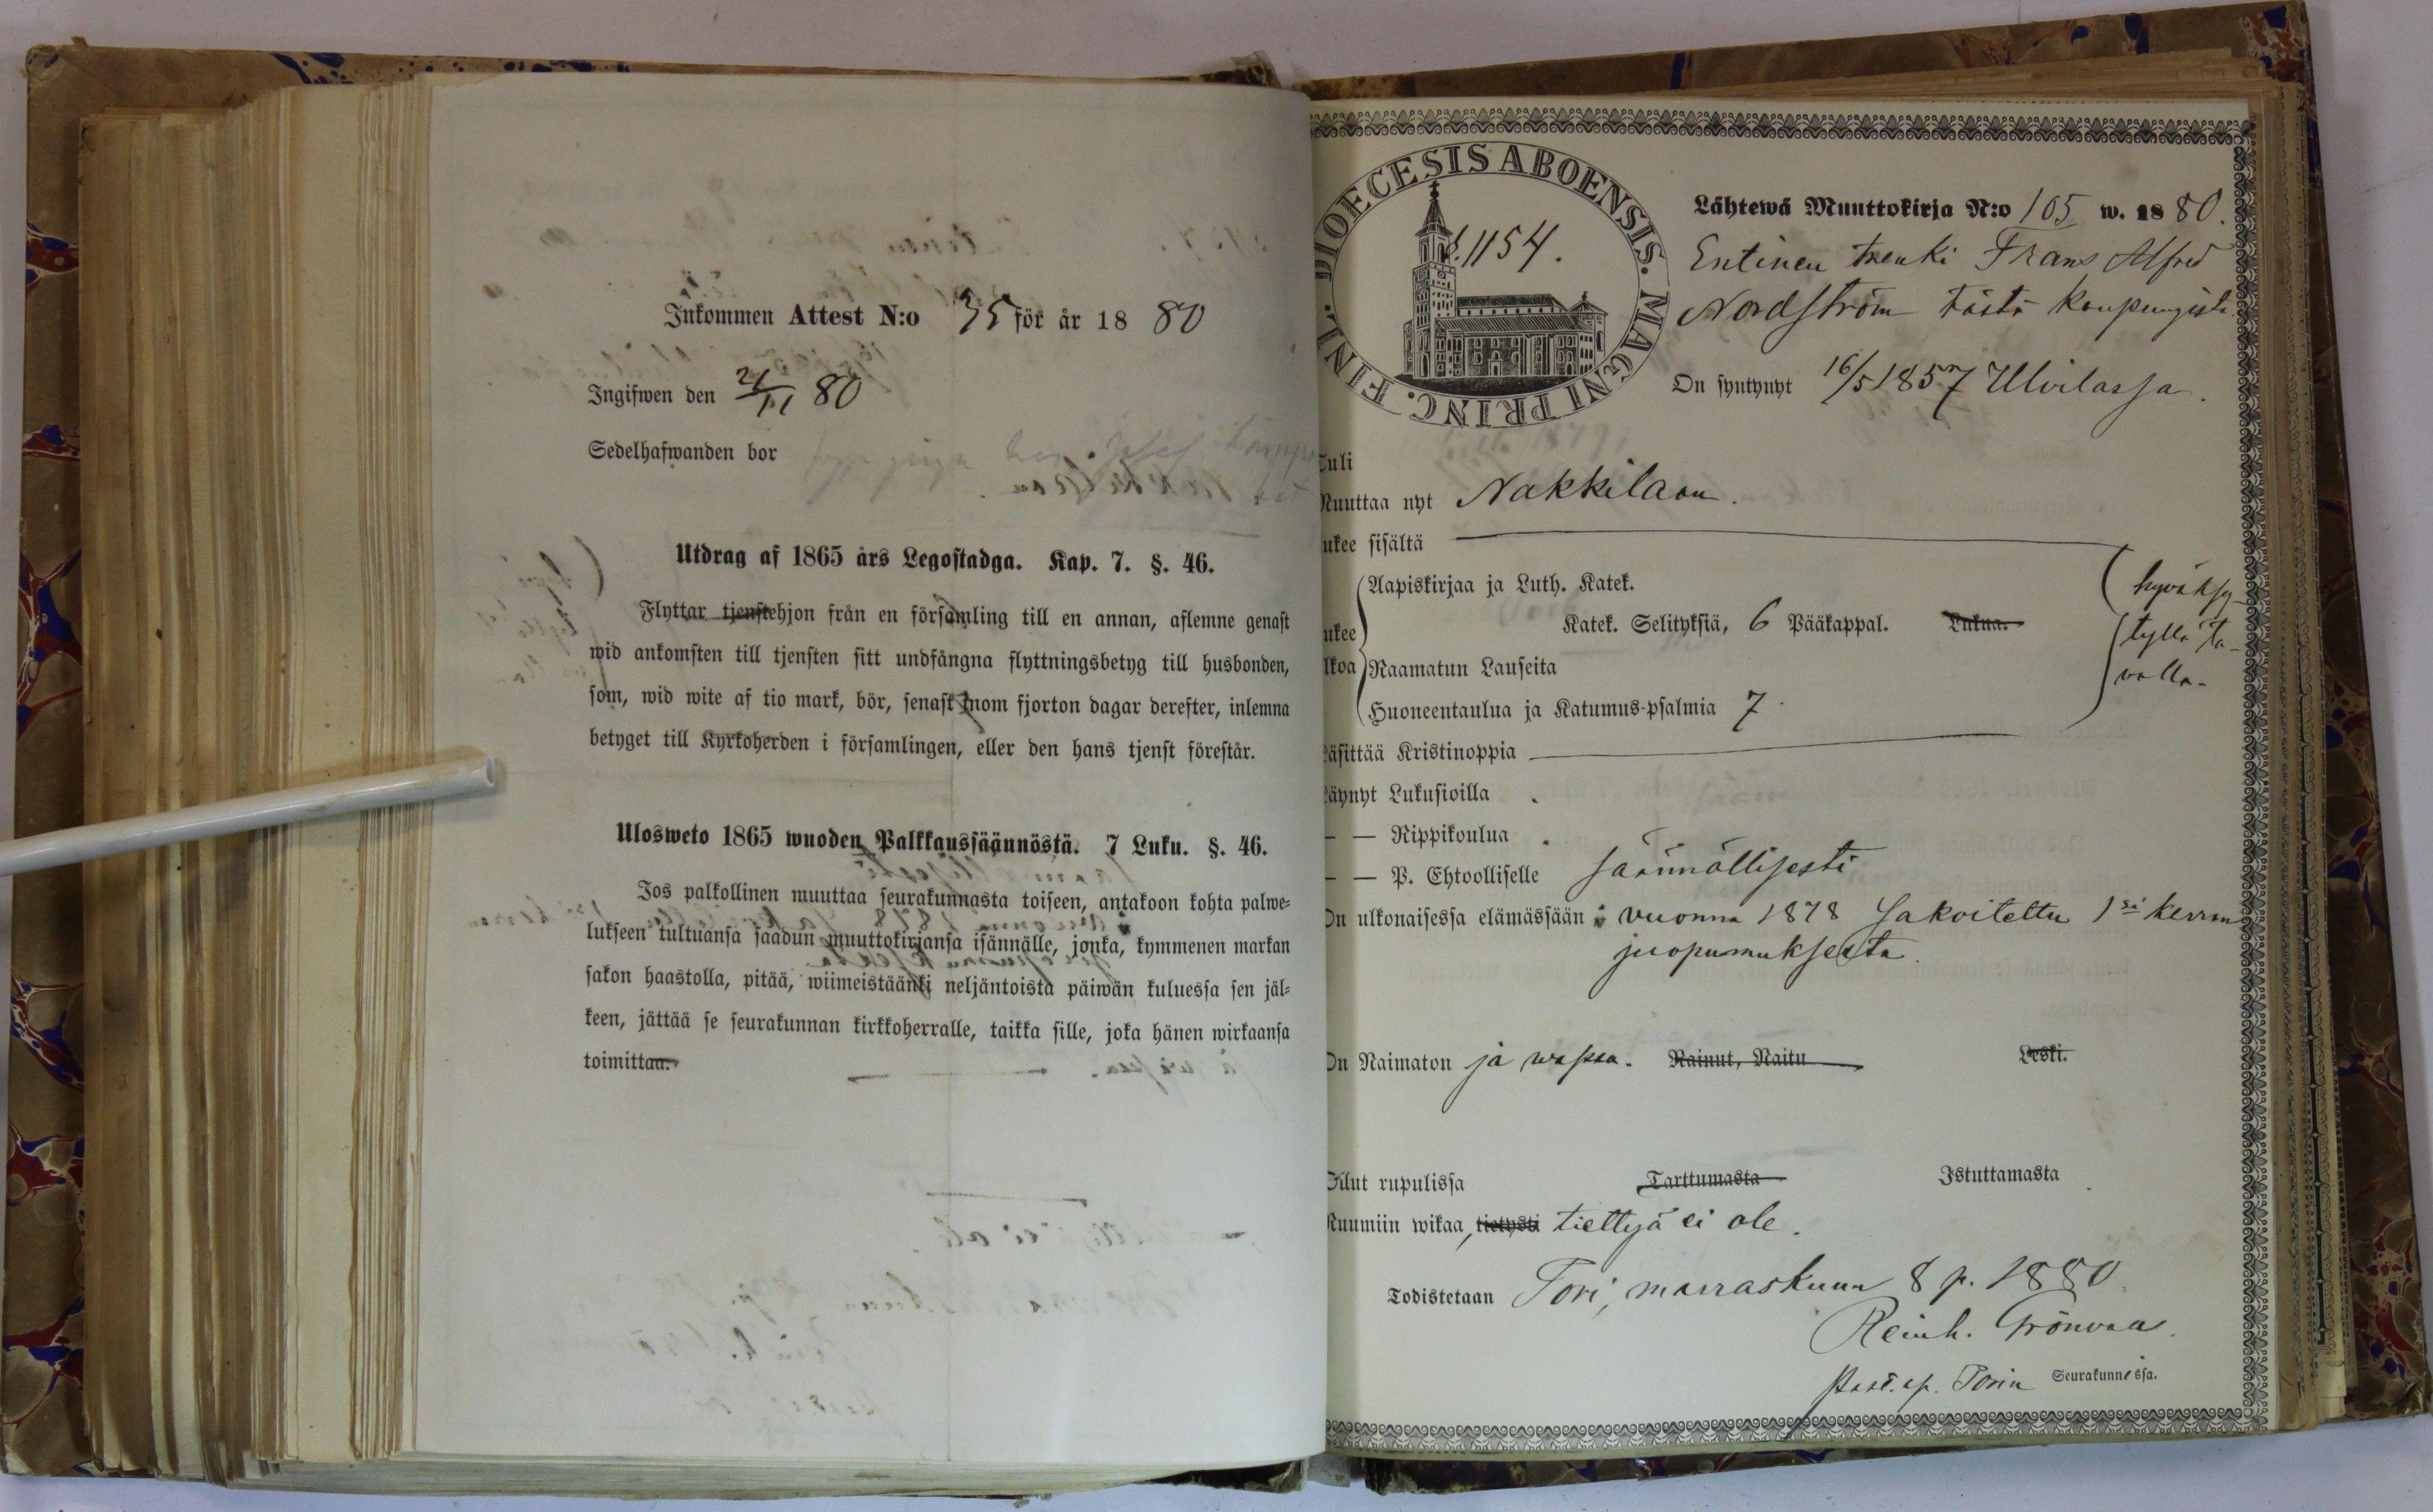 Inkommen Attest N:o 35 för år 18 80
Ingifwen den 21/11 80
Sedelhafwanden bor
Utdrag af 1865 års Legostadga. Kap. 7. §. 46.
Flyttar tjenstehjon från en församling till en annan, aflemne genast
wid ankomsten till tjensten sitt undfångna flyttningsbetyg till husbonden,
som, wid wite af tio mark, bör, senast inom fjorton dagar derefter, inlemna
betyget till Kyrkoherden i församlingen, eller den hans tjenst förestår.
Ulosweto 1865 wuoden Palkkaussäännöstä. 7 Luku. §. 46.
Jos palkollinen muuttaa seurakunnasta toiseen, antakoon kohta palwe-
lukseen tultuansa saadun muuttokirjansa isännälle, jonka, kymmenen markan
sakon haastolla, pitää, wiimeistäänki neljäntoista päiwän kuluessa sen jäl-
keen, jättää se seurakunnan kirkkoherralle, taikka sille, joka hänen wirkaansa
toimittaa.
DIOECESIS ABOENSIS. MAGNI PRINC. FINL.
S. 1154.
Lähtewä Muuttokirja N:o 105 w. 18 80.
Entinen trenki Frans Alfred
Nordström tästä kaupungista
On syntynyt 16/5 1857 Ulvilassa.
Tuli
Muuttaa nyt Nakkilaan.
ukee sisältä
ukee
lkoa
Aapiskirjaa ja Luth. Katek.
Katek. Selityksiä, 6 Pääkappal. Lukua.
Raamatun Lauseita
Huoneentaulua ja Katumus-psalmia 7
hyväksy-
tyllä ta-
valla.
äsittää Kristinoppia
äynyt Lukusioilla
— — Rippikoulua
— — P. Ehtoolliselle säännöllisesti
On ulkonaisessa elämässään vuonna 1878 sakoitettu 1si kerran
juopumuksesta.
On Naimaton ja wapaa. Nainut, Naitu Leski.
Ollut rupulissa Tarttumasta Istuttamasta
Ruumiin wikaa, tietysti tiettyä ei ole.
Todistetaan Pori, marraskuun 8 p. 1880
Reinh. Grönvall.
Past. ap. Porin Seurakunnissa.